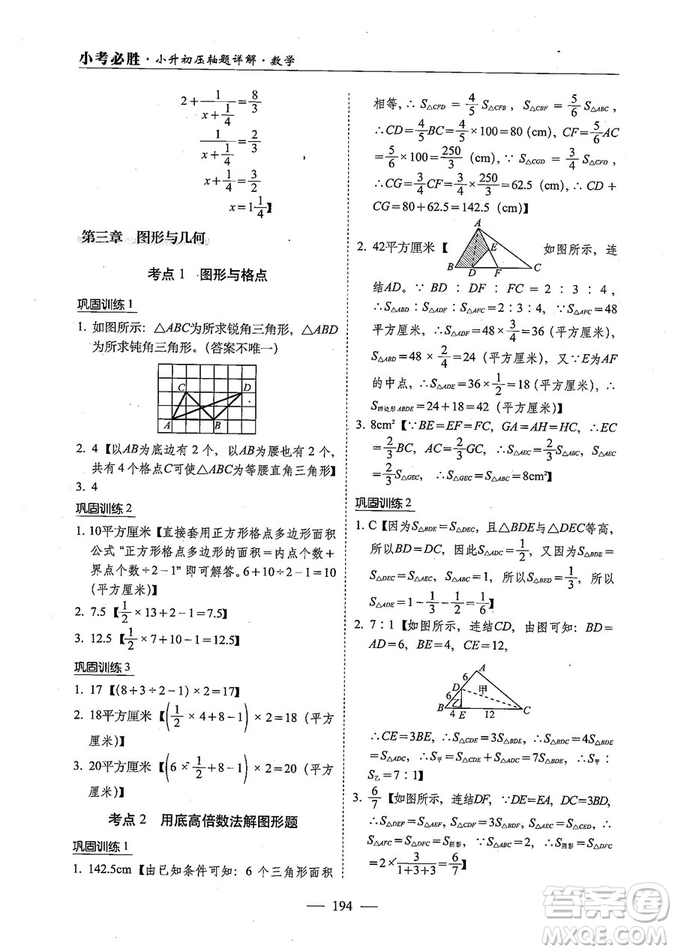 小考必胜·小升初压轴题详解·数学
2+1/(x+1/(x+1/4))=8/3
1/(x+1/4)=2/3
x+1/4=3/2
x=1 1/4】
第三章 图形与几何
考点1 图形与格点
巩固训练1
1. 如图所示:△ABC为所求锐角三角形,△ABD
为所求钝角三角形。(答案不唯一)
C D
A B
2. 4【以AB为底边有2个,以AB为腰也有2个,
共有4个格点C可使△ABC为等腰直角三角形】
3. 4
巩固训练2
1. 10平方厘米【直接套用正方形格点多边形面积
公式“正方形格点多边形的面积=内点个数+
界点个数÷2-1”即可解答。6+10÷2-1=10
(平方厘米)】
2. 7.5【1/2×13+2-1=7.5】
3. 12.5【1/2×7+10-1=12.5】
巩固训练3
1. 17【(8+3÷2-1)×2=17】
2. 18平方厘米【(1/2×4+8-1)×2=18(平方
厘米)】
3. 20平方厘米【(6×1/2+8-1)×2=20(平方
厘米)】
考点2 用底高倍数法解图形题
巩固训练1
1. 142.5cm【由已知条件可知:6个三角形面积
相等,∴S△CFD=4/5S△CBF,∵S△CBF=5/6S△ABC,
∴CD=4/5BC=4/5×100=80(cm),CF=5/6AC=
5/6×100=250/3(cm),∵S△CGD=3/4S△CFD,∴
CG=3/4CF=3/4×250/3=62.5(cm),∴CD+
CG=80+62.5=142.5(cm)】
2. 42平方厘米【
A
E
B D F C
如图所示,连
结AF。∵BD:DF:FC=2:3:4,
∴S△ABD:S△ADF:S△AFC=2:3:4,∵S△AFC=48
平方厘米,∴S△ADF=48×3/4=36(平方厘米),
S△ABD=48×1/2=24(平方厘米),又∵E为AF
的中点,∴S△ADE=36×1/2=18(平方厘米),∴
S四边形ABDE=24+18=42(平方厘米)】
3. 8cm²【∵BE=EF=FC,GA=AH=HC,∴EC=
2/3BC,AC=2/3GC,∴S△AEC=2/3S△ABC,S△AEC=
2/3S△GEC,∴S△GEC=S△ABC=8cm²】
巩固训练2
1. C【因为S△BDE=S△DEC,且△BDE与△DEC等高,
所以BD=DC,所以S△ABD=1/2,又因为S△BDE=
S△DEC=S△ACE,所以S△BDE=1/3,所以
S△ADE=1-1/3-1/2=1/6】
2. 7:1【如图所示,连结CD,由图可知:BD=
AD=6,BE=4,CE=12,
A
6
D 甲
6
乙
B 4 E 12 C
∴CE=3BE,∴S△CDE=3S△BDE,∵AD=BD,∴
S△BDC=S△ADC,∴S△ADC=4S△BDE,∴S甲:
S乙=7:1】
3. 6/7【如图所示,连结DF,∵DE=EA,DM=2AM,
∴S△DEF=S△AEF=S阴影,∴S△ADF=2S阴影,∴S△BDF=